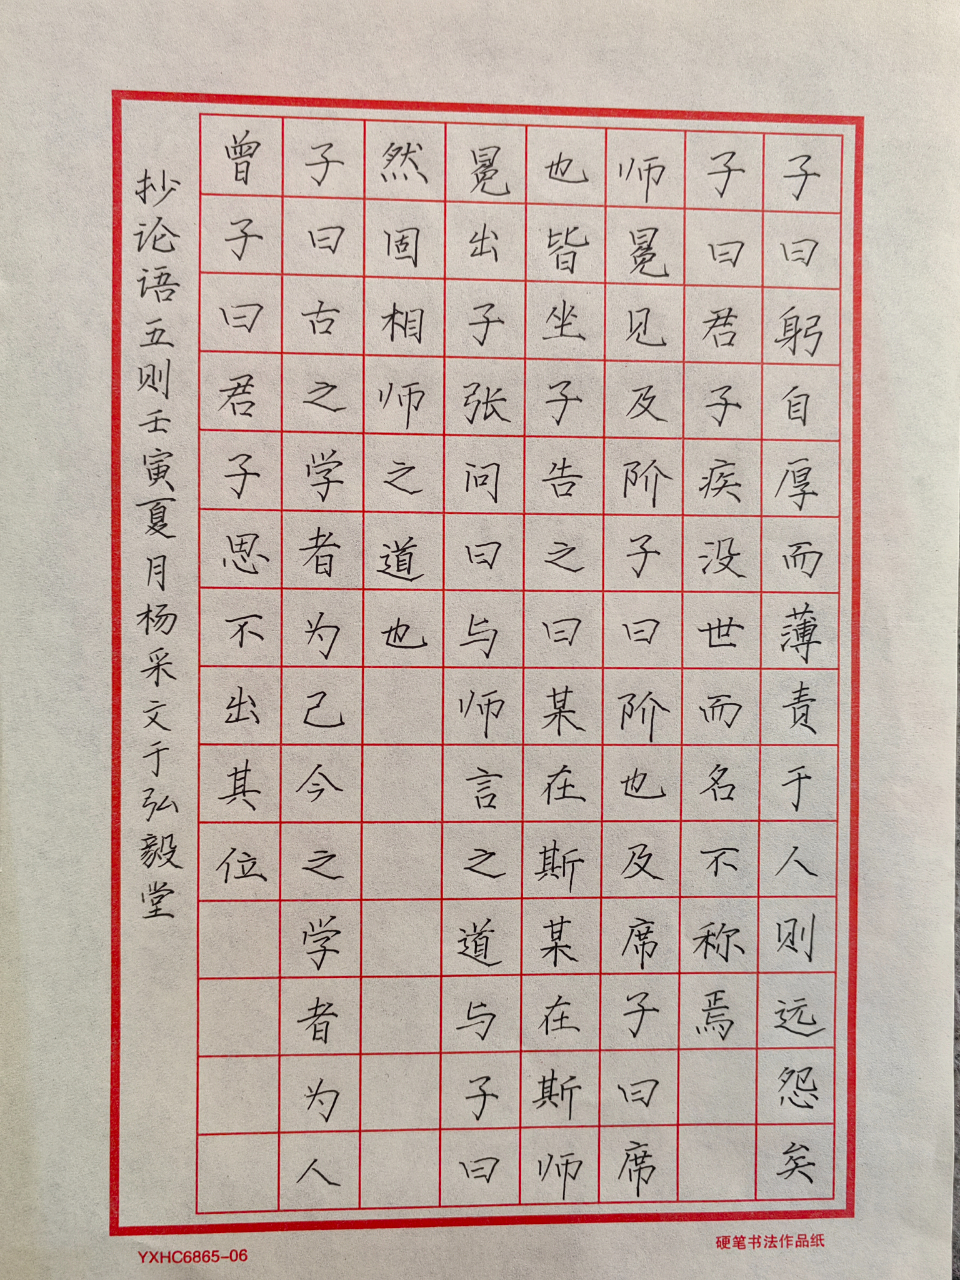 子曰躬自厚而薄责于人则远怨矣
子曰君子疾没世而名不称焉
师冕见及阶子曰阶也及席子曰席
也皆坐子告之曰某在斯某在斯师
冕出子张问曰与师言之道与子曰
然固相师之道也
子曰古之学者为己今之学者为人
曾子曰君子思不出其位
抄论语五则壬寅夏月杨采文于弘毅堂
YXHC6865-06
硬笔书法作品纸